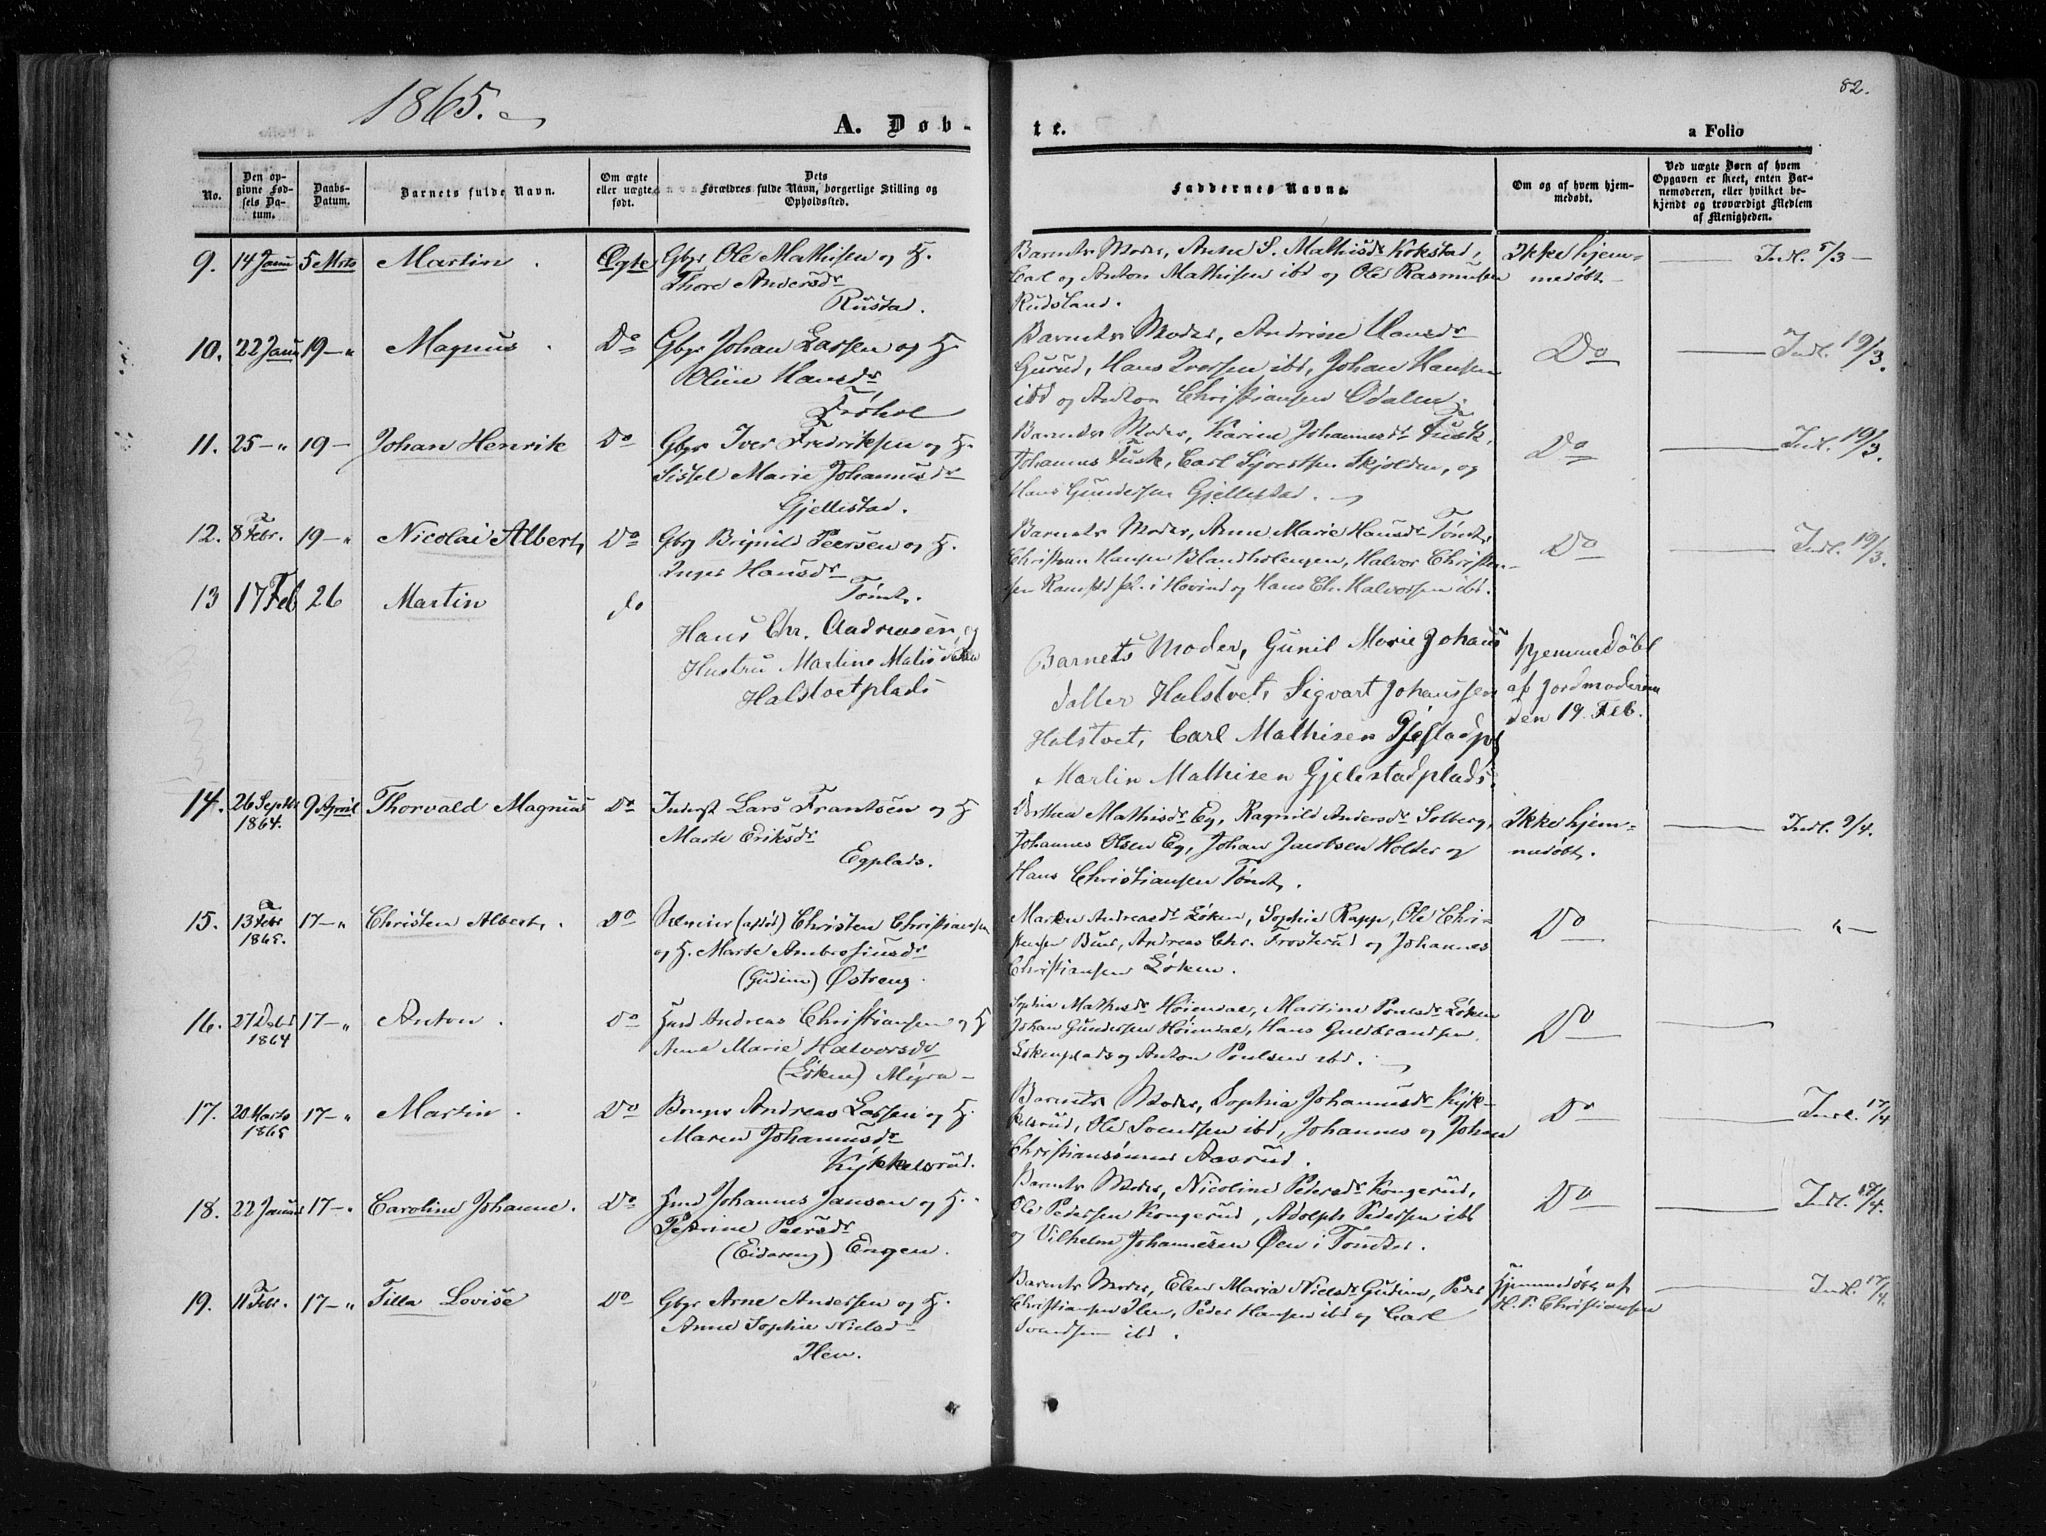 1865.
82.
A. Døb-
te.
a Folio
No.
Den op-
givne Fød-
sels Da-
tum.
Daabs-
Datum.
Barnets fulde Navn.
Om ægte
eller uægte
født.
Dets
Forældres fulde Navn, borgerlige Stilling og
Opholdssted.
Faddernes Navne.
Om og af hvem hjem-
medøbt.
Ved uægte Børn af hvem
Opgaven er skeet, enten Bar-
nemoderen, eller hvilket be-
kjendt og troværdigt Medlem
af Menigheden.
9. 14 Janu 5 Mrts Martin. Ægte Gbr Ole Mathisen og H.
Thore Andersdr
Rustad.
Barnets Moder, Anne S. Mathisdr Kokstad,
Carl og Anton Mathisen ibd og Ole Rasmusen
Rudsland.
Ikke hjem-
medøbt
Indl. 5/3 —
10. 22 Janu 19 - " Magnus. Do Gbr Johan Larsen og H.
Oline Hansdr
Frøhol
Barnets Moder, Andrine Hansdr
Gurud, Hans Iversen ibd, Johan Hansen
ibd og Anton Christiansen Odalen.
Do
Indl. 19/3.
11. 25 - " 19 - Johan Henrik Do Gbr Iver Fredriksen og H.
Sissel Marie Johannesdr
Gjellestad.
Barnets Moder, Karine Johannesdr Fusk,
Johannes Fusk, Carl Syvertsen Skjolden, og
Hans Gundersen Gjellestad.
Do
Indl. 19/3.
12. 8 Febr. 19 - " Nicolai Albert, Do Gbr Brynild Peersen og H.
Inger Hansdr
Tomt.
Barnets Moder, Anne Marie Hansdr Tomt,
Christian Hansen Blandholengen, Halvor Christen-
sen Ramstd pl. i Hovind og Hans Chr. Halvorsen ibd.
Do
Indl. 19/3.
13 17 Feb 26 Martin do
Hans Chr. Andreasen og
Hustru Martine Matisdatter
Halstvetplads
Barnets Moder, Gunil Marie Johans
datter Halstvet, Sigvart Johanssen
Halstvet, Carl Mathisen Gjestadpl
Martin Mathisen Gjelestadplads.
hjemmedøbt
af Jordmoderen
den 19. Feb.
14. 26 Septbr
1864. 9 April Thorvald Magnus Do Inderst Lars Frantsen og H
Marte Eriksdr
Egplads.
Dorthea Mathisdr Eg, Ragnild Andersdr Solberg,
Johannes Olsen Eg, Johan Jacobsen Holter og
Hans Christiansen Tomt.
Ikke hjem-
medøbt.
Indl. 9/4.
15. 13 Febr
1865. 17 - " Christen Albert. Do (afsk) Christen Christiansen
og H. Marte Ambrosiusdr
(Gudim) Østreng.
Maren Andreasdr Løken, Sophie Rapp, Ole Chri-
stensen Buer, Andreas Chr. Frosterud og Johannes
Christiansen Løken.
Do
" —
16. 27 Octbr
1864 17 - " Anton. Do Husd Andreas Christiansen og H
Anne Marie Halvorsdr
(Løken) Myra —
Sophia Mathisdr Høiendal, Martine Poulsdr Løken
Johan Gundersen Høiendal, Hans Guldbrandsen
Løkenplads og Anton Poulsen ibd.
Do
17. 20 Marts
1865 17 - " Martin. Do Andreas Larsen og H.
Maren Johannesdr
Kykkelsrud.
Barnets Moder, Sophia Johannesdr Kyk-
kelsrud, Ole Svendsen ibd, Johannes og Johan
Christiansønner Aasrud.
Do
Indl. 17/4
18. 22 Januar 17 - " Caroline Johanne. Do Husd Johannes Jansen og H.
Petrine Peersdr
(Eidareng) Engen.
Barnets Moder, Nicoline Pedersdr Kongerud,
Ole Pedersen Kongerud, Adolph Pedersen ibd
og Vilhelm Johannesen Øen i Tomter.
Do
Indl. 17/4.
19. 11 Febr. 17 - " Tilla Lovise Do Gbr Arne Andersen og H.
Anne Sophie Nielsdr
Hen.
Barnets Moder, Elen Maria Nielsdr Gudim, Peder
Christiansen Hen, Peder Hansen ibd og Carl
Svendsen ibd.
Hjemmedøbt af
H. P. Christiansen
Indl. 17/4.